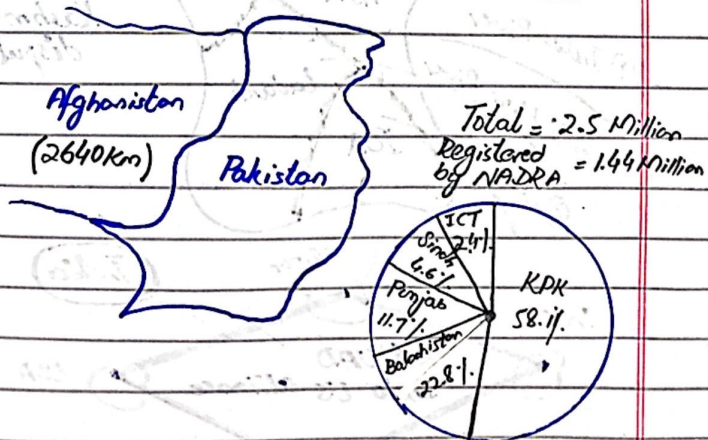 Afghanistan
(2640 Km)
Pakistan
Total = 2.5 Million
Registered
by NADRA = 1.44 Million
ICT
2.4%
Sindh
4.6%
Punjab
11.7%
Balochistan
22.8%
KPK
58.1%